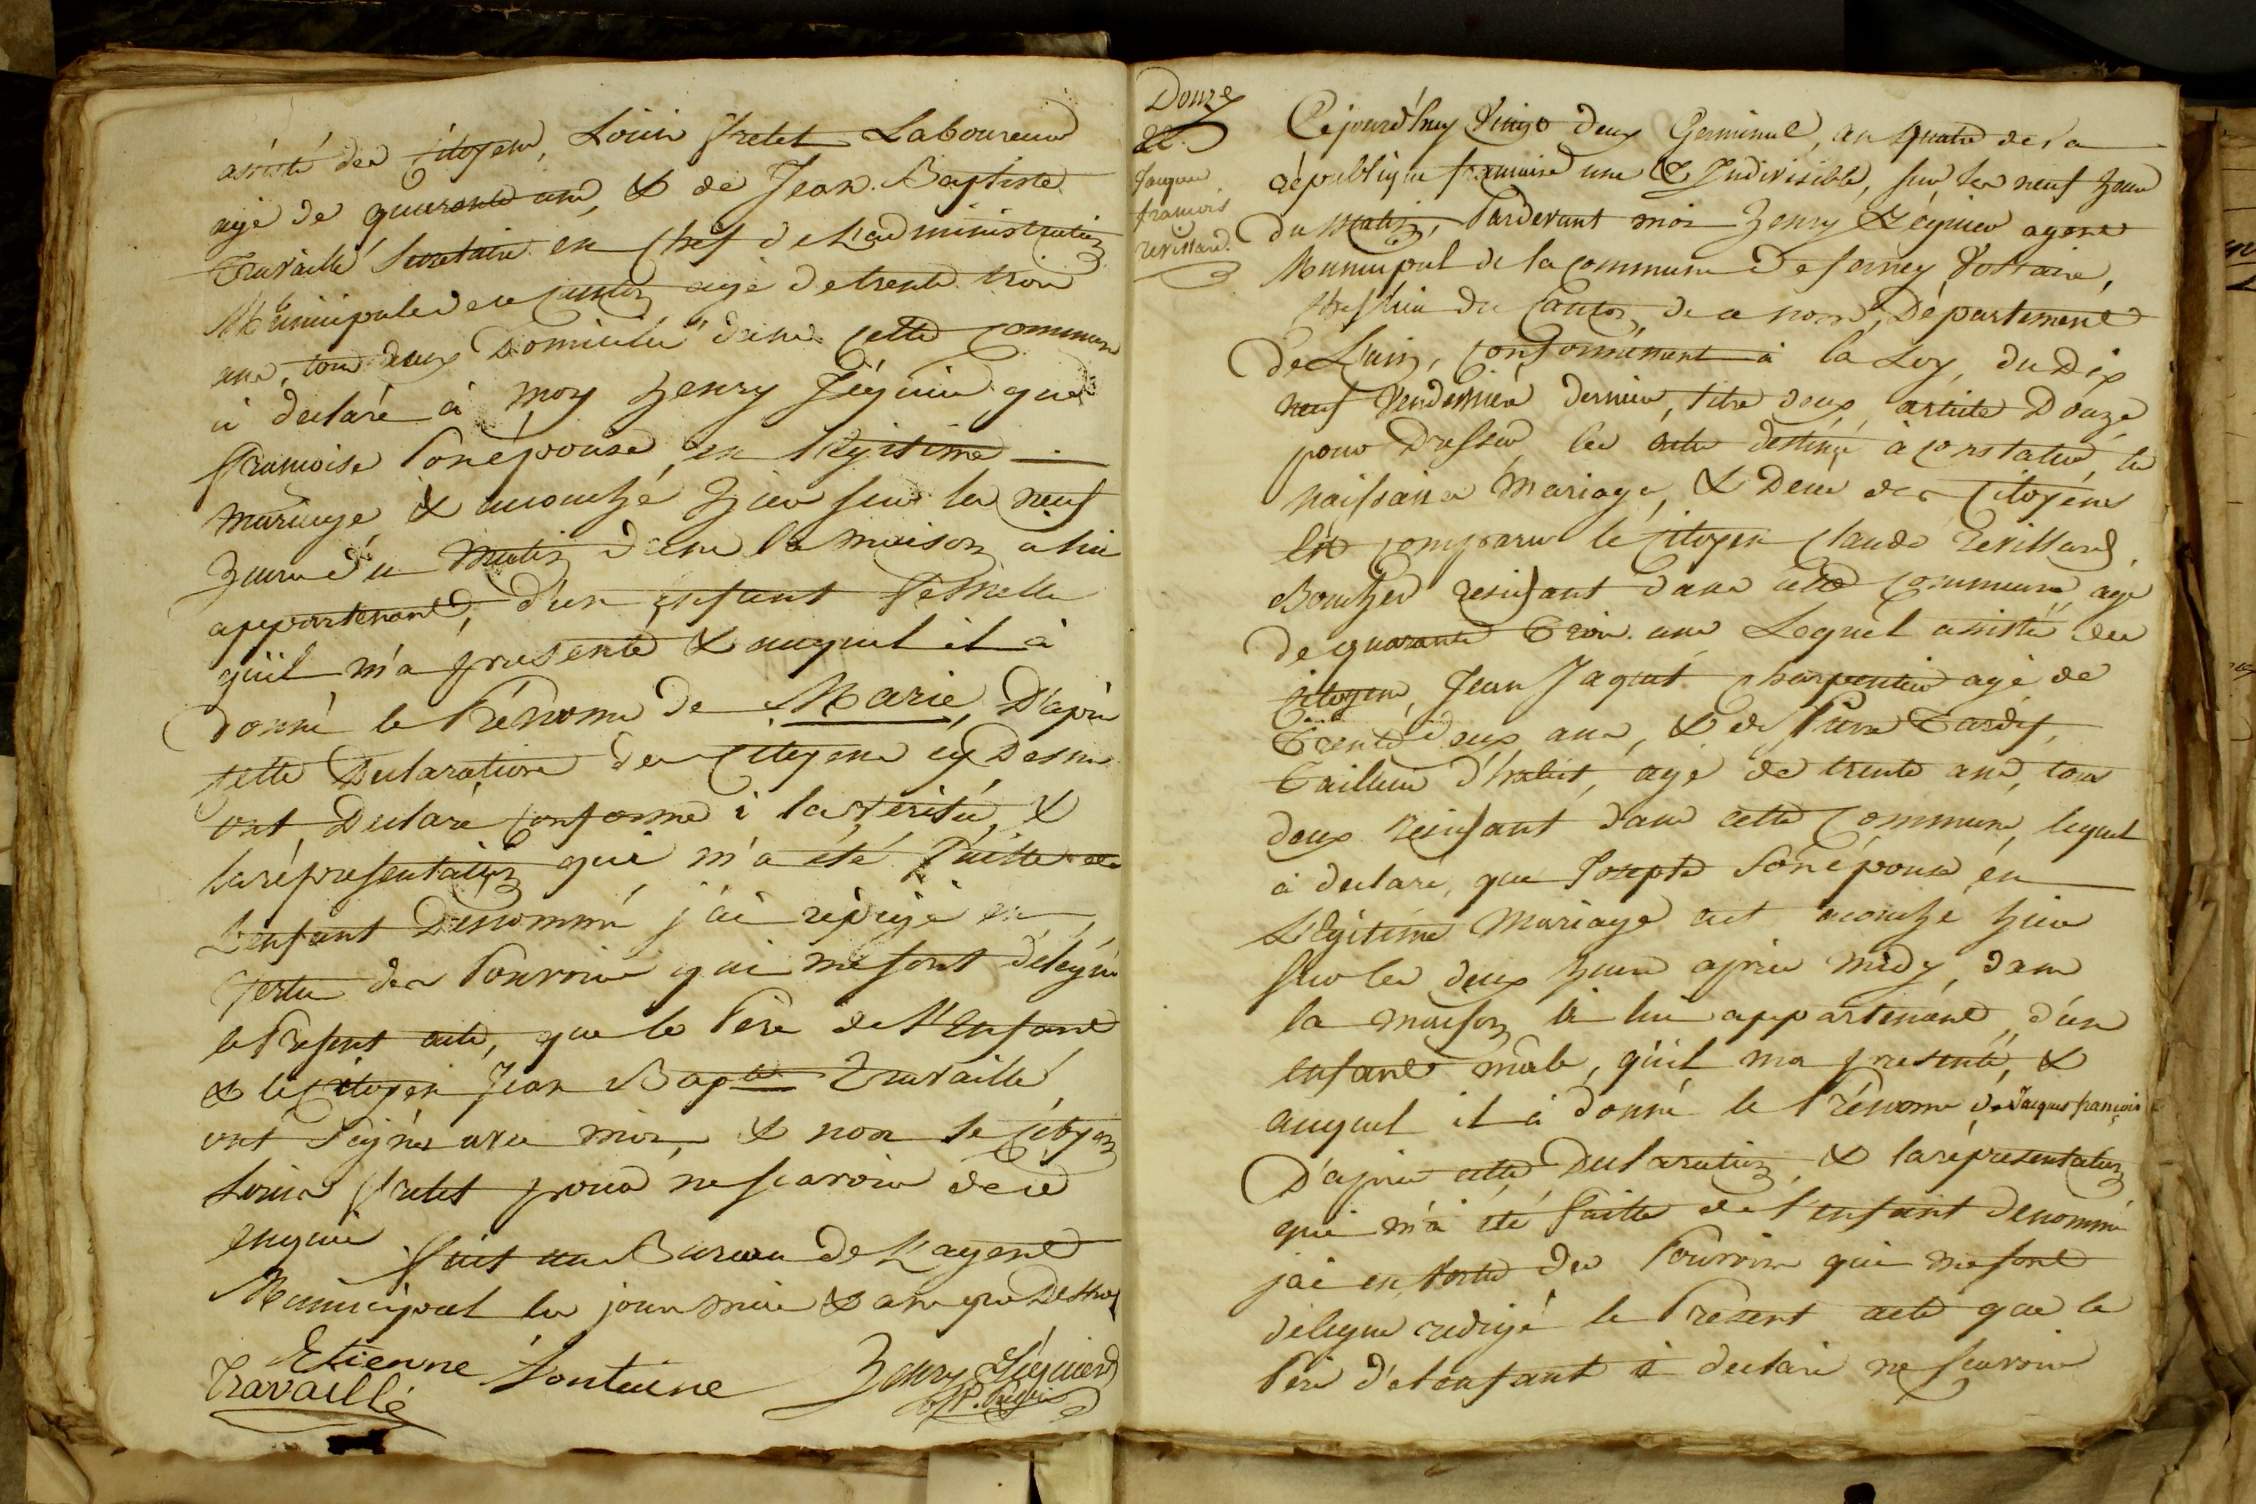 assisté des Citoyens, Louis fretet Laboureur
agé de quarante ans, & de Jean Baptiste
Travaillé Secretaire en Chef de L'administration
Municipale de ce Canton agé de trente trois
ans, tous deux Domiciliés dans cette Commune
à declaré à moy henry Séguin que
françoise Son épouse en Légitime
mariage, & accouché hier sur les neuf
heures du matin dans la maison a lui
appartenant, d'un enfant femelle
qu'il m'a presenté & auquel il à
donné le Prénom de Marie, D'après
cette Declaration des Citoyens cy Dessus
ont Declaré conforme à la vérité, &
la répresentation qui m'a été faitte de
L'enfant Denommé j'ai rédigé en
vertu des Pouvoirs qui me sont délégués
le Present acte, que le Père de l'Enfant
& le Citoyen Jean Bapte Travaillé,
ont Signés avec moi, & non le Citoyen
Louis fretet pour ne scavoir de ce
enquis fait au Bureau de L'agent
Municipal les jours mois & an que Dessus
Etienne Fontaine
Travaillé
henry Séguin
Douze
22.
Jacques
françois
revillard.
Cejourd'huy Vingt deux Germinal, an quatre de la
république francaise une & Indivisible, sur les neuf heures
du matin, Pardevant moi henry Séguin agent
Municipal de la commune de ferney Voltaire,
chef lieu du Canton de ce nom, Département
de L'ain, conformément à la Loy, du Dix
neuf Vendemiere dernier, titre deux, article Douze
pour Dresser les actes destinés à constater, les
naissances Mariages, & Deces des Citoyens
Est comparu le Citoyen Claude revillard
Boucher residant dans cette Commune agé
de quarante trois ans Lequel assisté des
citoyens, Jean Jaquet charpentier agé de
Trente deux ans, & de Pierre Tardy,
Tailleur d'habit, agé de trente ans, tous
deux residant dans cette Commune, lequel
à declaré, que Josepte Son épouse en
Légitime Mariage est accouché hier
sur les deux heures après midy, dans
la maison à lui appartenant, d'un
enfant mâle, qu'il ma presenté, &
auquel il à donné le Prénom de Jacques françois
D'après cette Declaration, & la répresentation
qui m'a été faitte de l'enfant denommé
j'ai en vertu des Pouvoirs qui me sont
delegués redigé le Present acte que le
Père de l'enfant à declaré ne scavoir